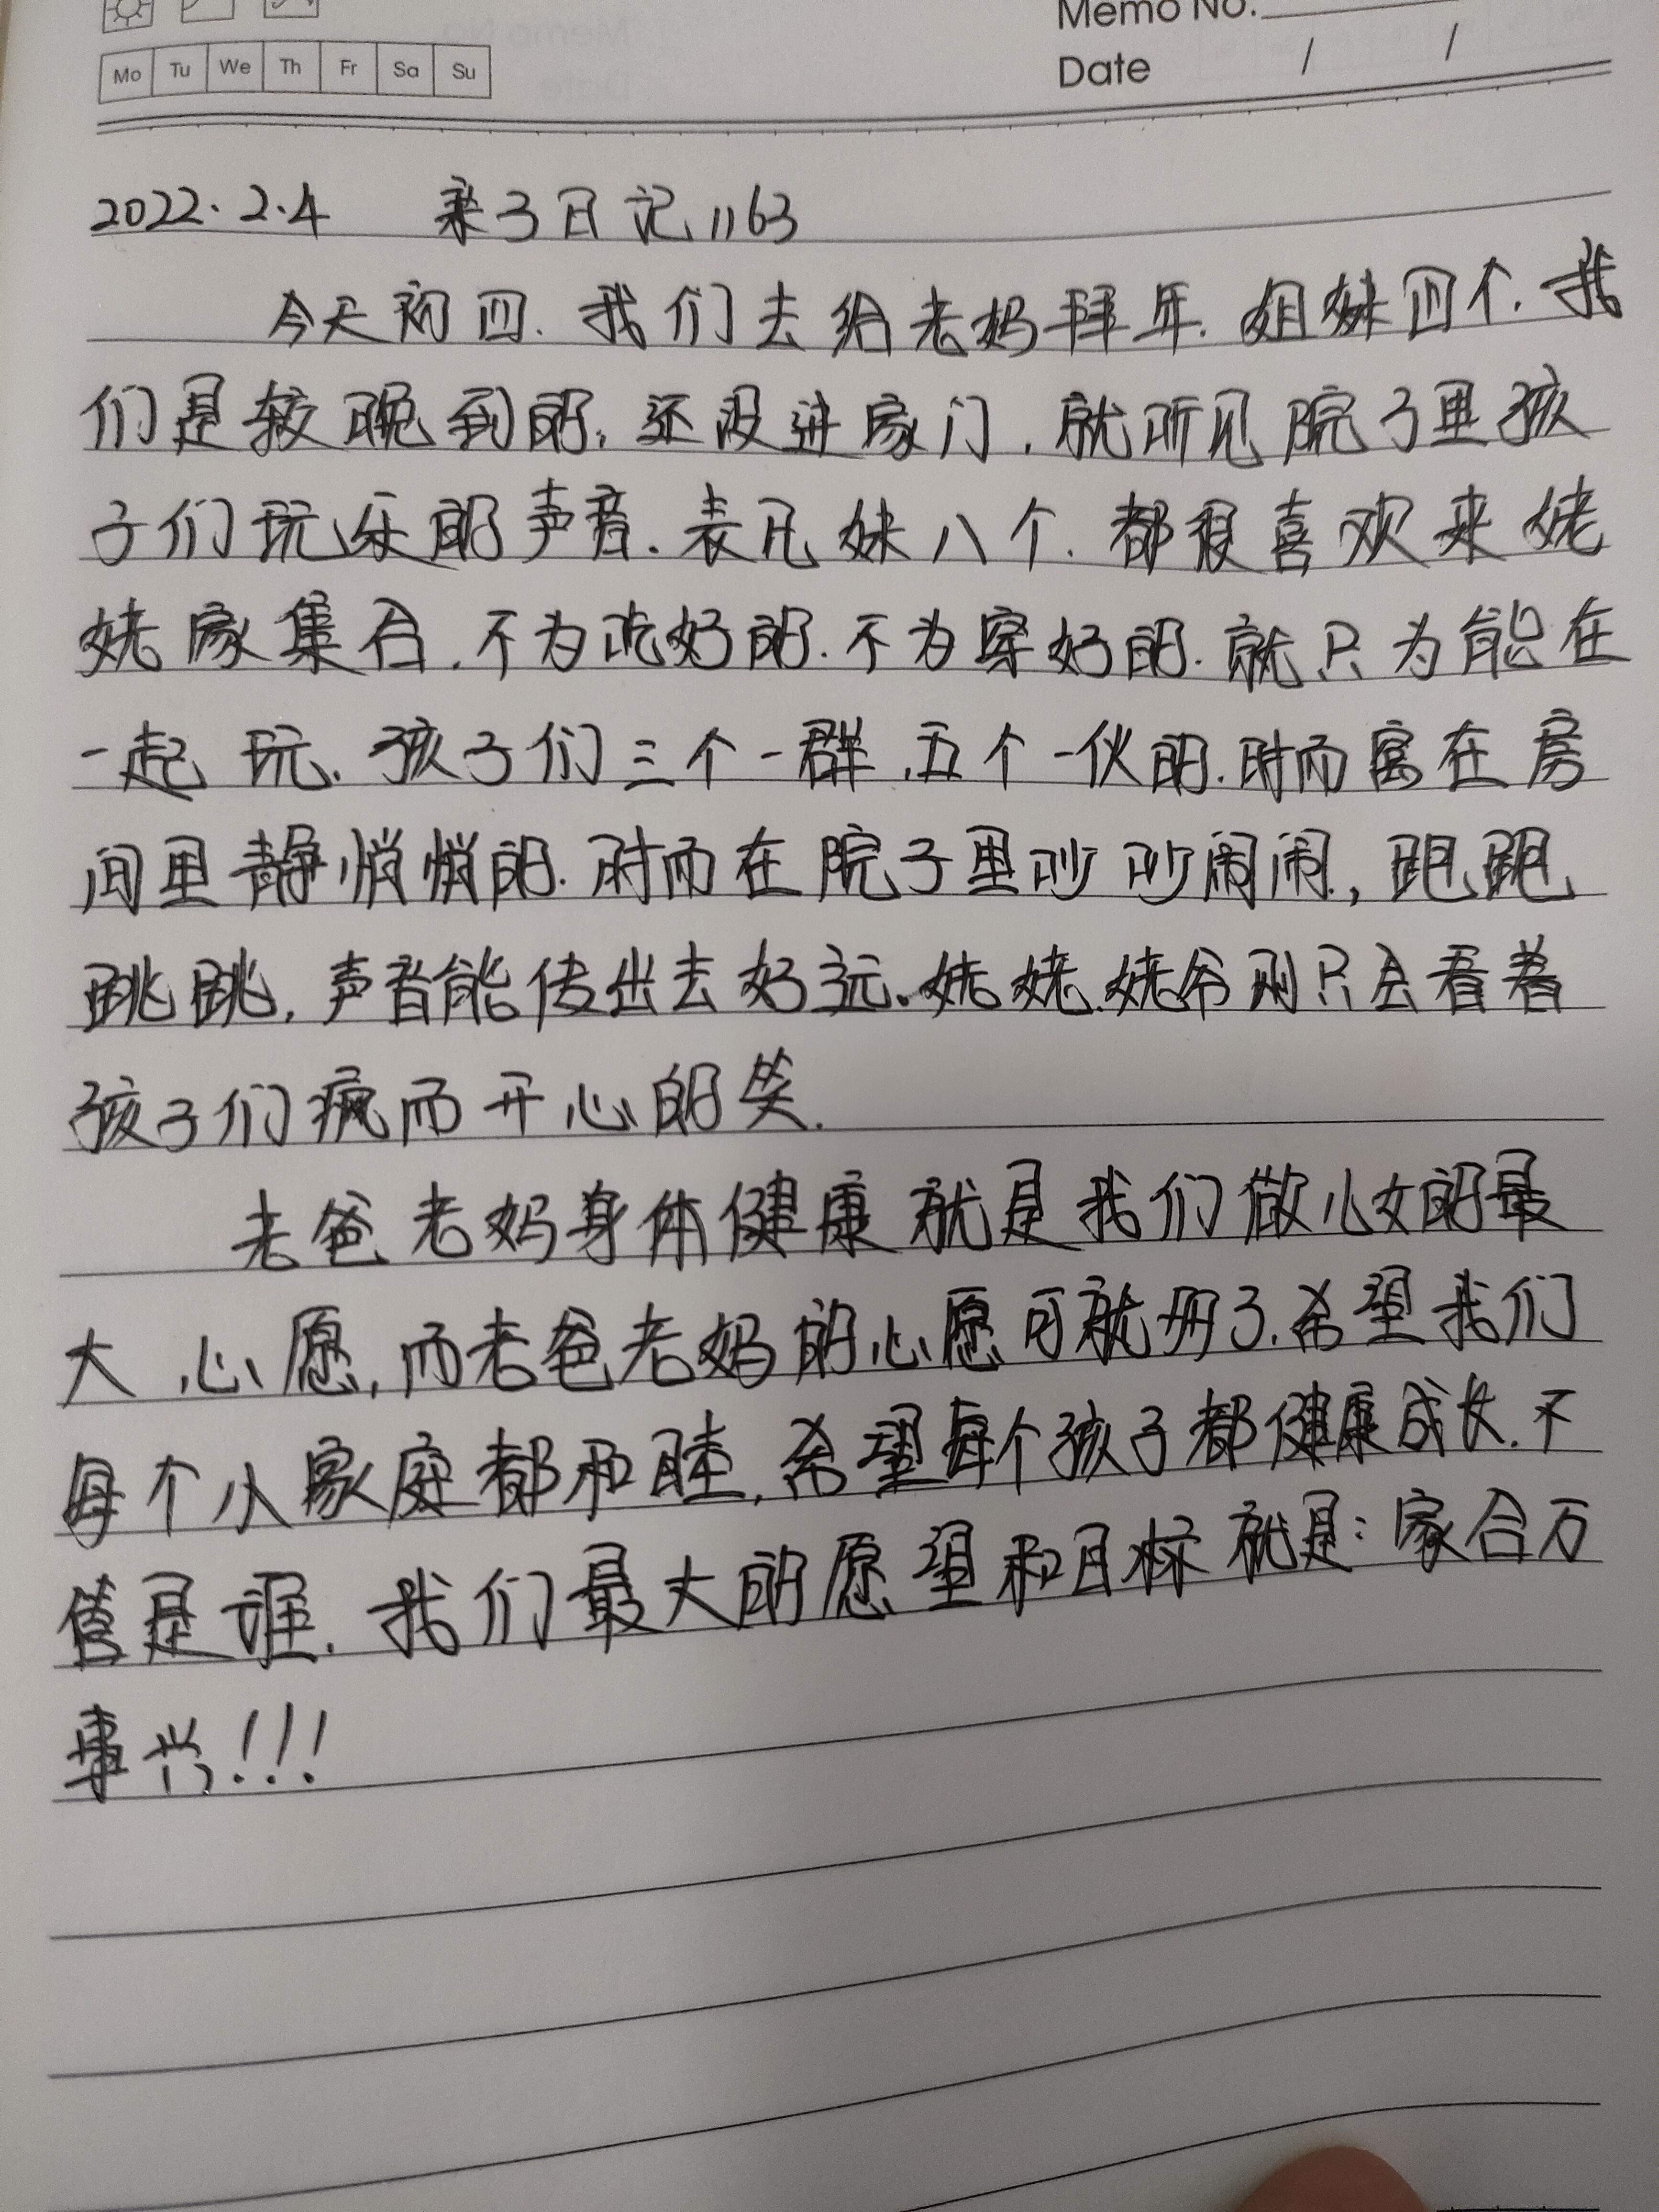 Memo No.
Mo Tu We Th Fr Sa Su
Date / /
2022.2.4 亲子日记1163
今天初四.我们去给老妈拜年.姐妹四个.我
们是较晚到的,还没进家门,就听见院子里孩
子们玩乐的声音.表兄妹八个.都很喜欢来姥
姥家集合.不为吃好的.不为穿好的.就只为能在
一起玩.孩子们三个一群,五个一伙的.时而窝在房
间里静悄悄的.时而在院子里吵吵闹闹,跑跑
跳跳,声音能传出去好远.姥姥.姥爷则只会看着
孩子们疯而开心的笑.
老爸老妈身体健康就是我们做儿女的最
大心愿,而老爸老妈的心愿可就多了.希望我们
每个小家庭都和睦,希望每个孩子都健康成长.不
管是谁.我们最大的愿望和目标就是:家合万
事兴!!!